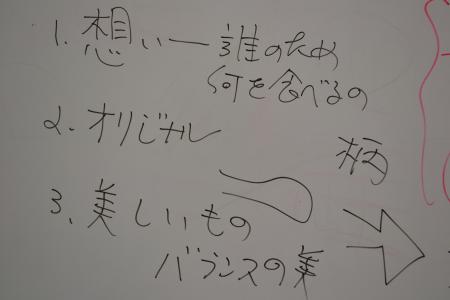 1. 想い一誰のため
何を食べるの
2. オリジナル
柄
3. 美しいもの
バランスの美